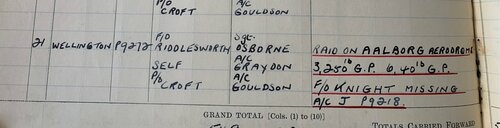 P/O A/C
CROFT GOULDSON
21 WELLINGTON P9272 F/O Sgt.
RIDDLESWORTH OSBORNE RAID ON AALBORG AERODROME
A/C
SELF GRAYDON 3,250 lb G.P. 6,40 lb G.P.
P/O A/C
CROFT GOULDSON F/O KNIGHT MISSING
A/C J P9218.
GRAND TOTAL [Cols. (1) to (10)]
TOTALS CARRIED FORWARD